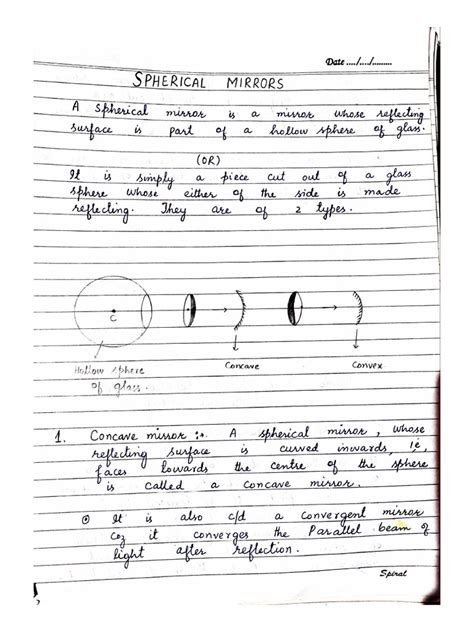 Date ..../..../.........
SPHERICAL MIRRORS
A Spherical mirror is a mirror whose reflecting
surface is part of a hollow sphere of glass.
(OR)
It is simply a piece cut out of a glass
sphere whose either of the side is made
reflecting. They are of 2 types.
C
Hollow sphere
of glass.
Concave
Convex
1. Concave mirror :- A spherical mirror, whose
reflecting surface is curved inwards i.e,
faces towards the centre of the sphere
is called a concave mirror.
It is also c/d a convergent mirror
coz it converges the Parallel beam of
light after reflection.
Spiral